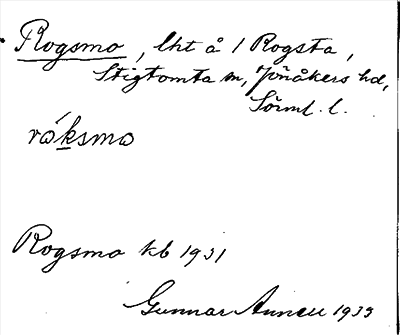 Rogsmo, lht å 1 Rogsta,
Stigtomta sn, Jönåkers hd,
Sörml. l.
ró̱ksmo
Rogsmo kb 1931
Gunnar 1933